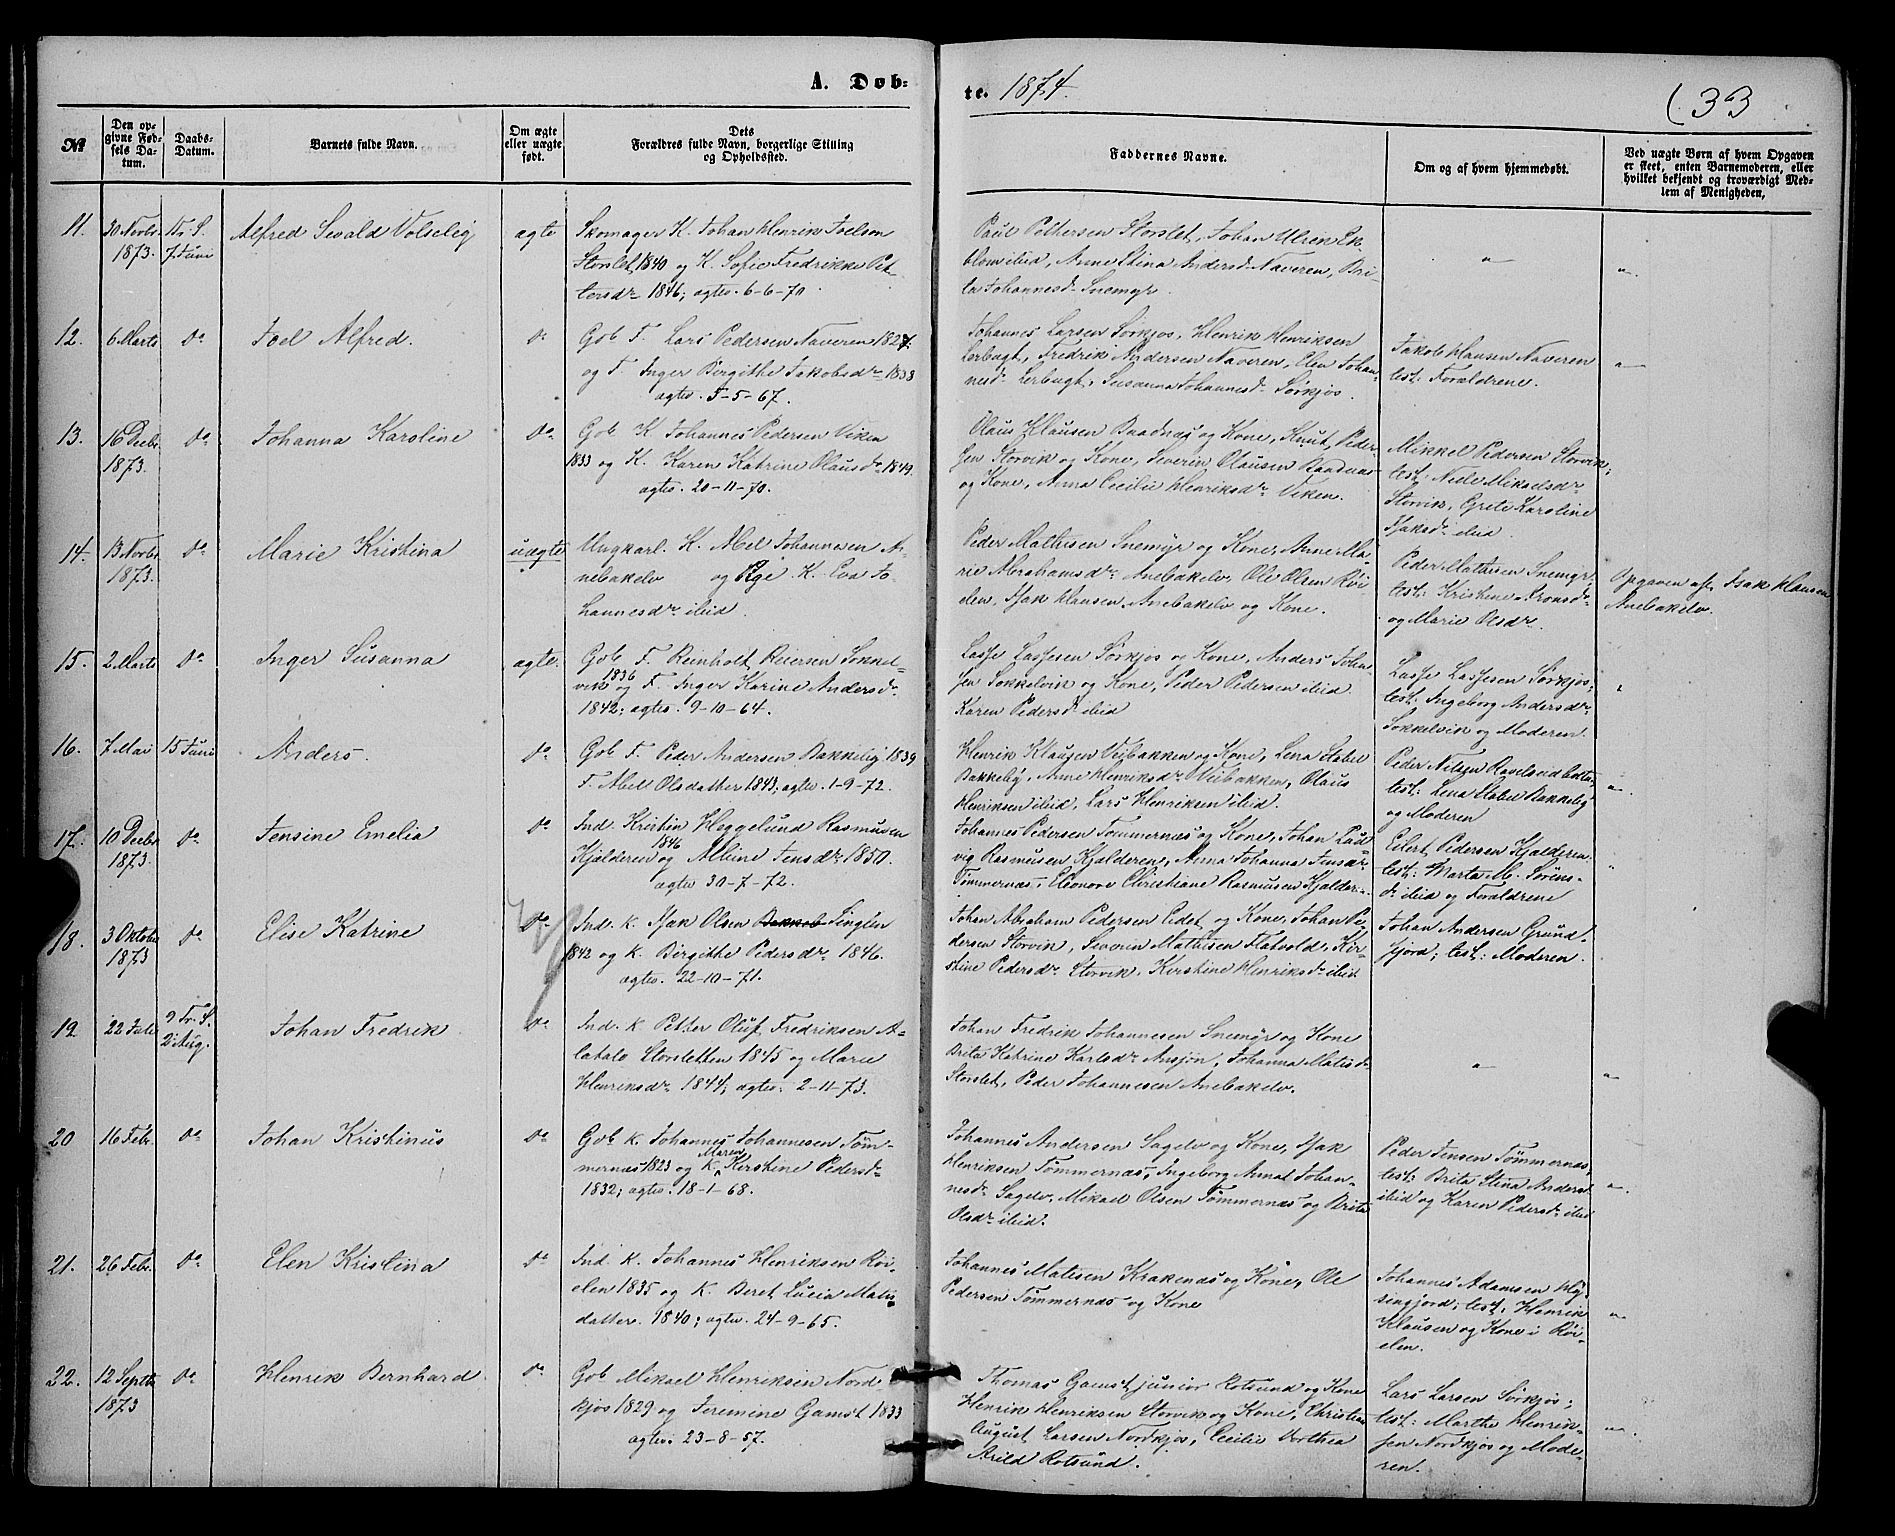 A. Døb-
te. 1874.
33
№
Den op-
givne Fød-
sels Da-
tum.
Daabs-
Datum.
Barnets fulde Navn.
Om ægte
eller uægte
født.
Dets
Forældres fulde Navn, borgerlige Stilling
og Opholdssted.
Faddernes Navne.
Om og af hvem hjemmedøbt.
Ved uægte Børn af hvem Opgaven
er skeet, enten Barnemoderen, eller
hvilket bekjendt og troværdigt Med-
lem af Menigheden,
11.
30 Novbr
1873.
Tr. S.
7 Juni
Alfred Sevald Volselig
ægte
Skomager K. Johan Henrik Joelsen
Storslet 1840 og K. Sofie Fredrikke Pet-
tersdr 1846; agtev. 6-6-70.
Paul Pettersen Storslet, Johan Ulrik Ek-
blom ibid, Anne Stina Andersd. Naveren, Bri-
ta Johannesd. Snemyr.
12.
6 Marts
do
Joel Alfred.
do
Gob. F. Lars Pedersen Naveren 1827.
og F. Inger Birgithe Jakobsdr 1838
agtev. 5-5-67.
Johannes Larsen Sørkjos, Henrik Henriksen
Lerbugt, Fredrik Andersen Naveren, Elen Johan-
nesdr Lerbugt, Susanna Johannesd. Sørkjos.
Jakob Hansen Naveren
test: Forældrene.
13.
16 Decbr
1873.
do
Johanna Karoline
do
Gob. K. Johannes Pedersen Viken
1833 og K. Karen Katrine Olausdr 1849.
agtev. 20-11-70.
Olaus Hansen Baadnæs og Kone, Knut Peder-
sen Storvik og Kone, Severin Olausen Baadnæs
og Kone, Anna Cecilie Henriksdr Viken.
Mikkel Pedersen Storvik;
test: Mikkelsdr
Storvik, Grete Karoline
Isaksdr ibid.
14.
13 Novbr
1873.
do
Marie Kristina
uægte
Ungkarl. K. Abel Johannesen An-
nebakelv og Pige K. Eva Jo-
hannesdr ibid.
Peder Mathisen Snemyr og Kone, Anne Ma-
rie Abrahamsdr Anebakelv, Ole Olsen Røi-
elen, Isak Hansen Anebakelv og Kone.
Peder Mathisen Snemyr.
test: Kristine
og Marie Olsdr.
Opgaven af Isak Hansen
Anebakelv.
15.
2 Marts
do
Inger Susanna
ægte.
Gob. F. Reinholt Reiersen Sokkel-
vik 1836 og F. Inger Karine Andersdr
1842; agtev. 9-10-64.
Lasse Lassesen Sørkjos og Kone, Anders Johan-
sen Sokkelvik og Kone, Peder Pedersen ibid.
Karen Pedersd. ibid
Lasse Lassesen Sørkjos,
test: Ingeborg Andersdr
Sokkelvik og Moderen.
16.
7 Mai
15 Juni
Anders.
do
Gob. F. Peder Andersen Bakkeby 1839
F. Abel Olsdatter 1843; agtev. 1-9-72.
Henrik Klausen Veibakken og Kone, Lena Isabel
Bakkeby, Anne Henriksdr Veibakken, Olaus
Henriksen ibid, Lars Henriksen ibid.
Peder Nilsen
test: Lena Isabel Bakkeby
og Moderen
17.
10 Decbr
1873.
do
Jensine Emelia
do
Ind. Kristen Heggelund Rasmusen
Hjalderen 1846 og Albine Jensdr 1850.
agtev. 30-7-72.
Johannes Pedersen Tømmernes og Kone, Johan Lud-
vig Rasmusen Hjalderen, Anna Johanna Jensdr
Tømmernæs, Eleonore Christiane Rasmusen Hjalder.
Eilert Pedersen Hjalderen.
test: Marta M. Sørens-
dr ibid og Forældrene
18.
3 Oktober
1873
do
Elise Katrine
do
Ind. K. Isak Olsen Singlen
1842 og K. Birgithe Pedersdr 1846.
agtev. 22-10-71.
Johan Abraham Pedersen Eidet og Kone, Johan Pe-
dersen Storvik, Severin Mathisen Flatvold, Kir-
stine Pedersdr Storvik, Kirstine Henriksdr ibid
Johan Andersen Grund-
fjord; test: Moderen.
19
22 Juli
9 Tr. S.
2 Aug.
Johan Fredrik
do
Ind. K. Petter Oluf Fredriksen A-
latalo Storsletten 1845 og Marie
Henriksdr 1844; agtev. 2-11-73.
Johan Fredrik Johannesen Snemyr og Kone
Brita Katrine Karlsdr Ansjøn, Johanna Matisd.
Storslet, Peder Johannesen Anebakelv.
20
16 Febr.
do
Johan Kristinus
do
Gob. K. Johannes Johannesen Tøm-
mernæs 1823 og K. Maren Kirstine Pedersdr
1832; agtev. 18-1-68.
Johannes Andersen Sagelv og Kone, Isak
Henriksen Tømmernæs, Ingeborg Anna Johan-
nesdr Sagelv, Mikael Olsen Tømmernæs og Brita
Olsdr ibid.
Peder Jensen Tømmernæs,
test: Brita Stina Andersd.
ibid og Karen Pedersdr ibid
21.
26 Febr.
do
Elen Kristina
do
Ind. K. Johannes Henriksen Røi-
elen 1835 og K. Beret Lucia Matis
datter. 1840; agtev. 24-9-65.
Johannes Matisen Krakenæs og Kone, Ole
Pedersen Tømmernæs og Kone
Johannes Adamsen
test: Henrik
Klausen og Kone i Røi-
elen.
22.
12 Septbr
1873
do
Henrik Bernhard
do
Gob. Mikael Henriksen Nord-
kjos 1829 og Jeremine Gamst 1833
agtev: 23-8-57.
Thomas Gamst junior Rotsund og Kone
Henrik Henriksen Storvik og Kone, Christian
August Larsen Nordkjos, Cecilie Dorthea
Arild Rotsund.
Lars Larsen Sørkjos;
test: Marthe Henrik-
sen Nordkjos og Mode-
ren.